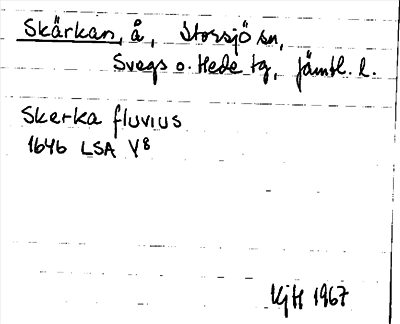 Skärkan, å, Storsjö sn,
Svegs o. Hede tg, Jämtl. l.
Skerka fluvius
1646 LSA V8
KjH 1967